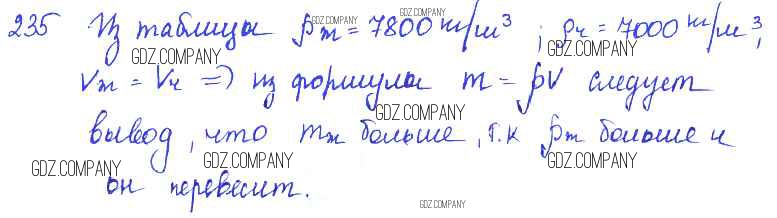 235 Из таблицы ρж = 7800 кг/м³ ; ρч = 7000 кг/м³,
Vж = Vч => из формулы m = ρV следует
вывод, что mж больше, т.к ρж больше и
он перевесит.
GDZ.COMPANY
GDZ.COMPANY
GDZ.COMPANY
GDZ.COMPANY
GDZ.COMPANY
GDZ.COMPANY
GDZ.COMPANY
GDZ.COMPANY
GDZ.COMPANY